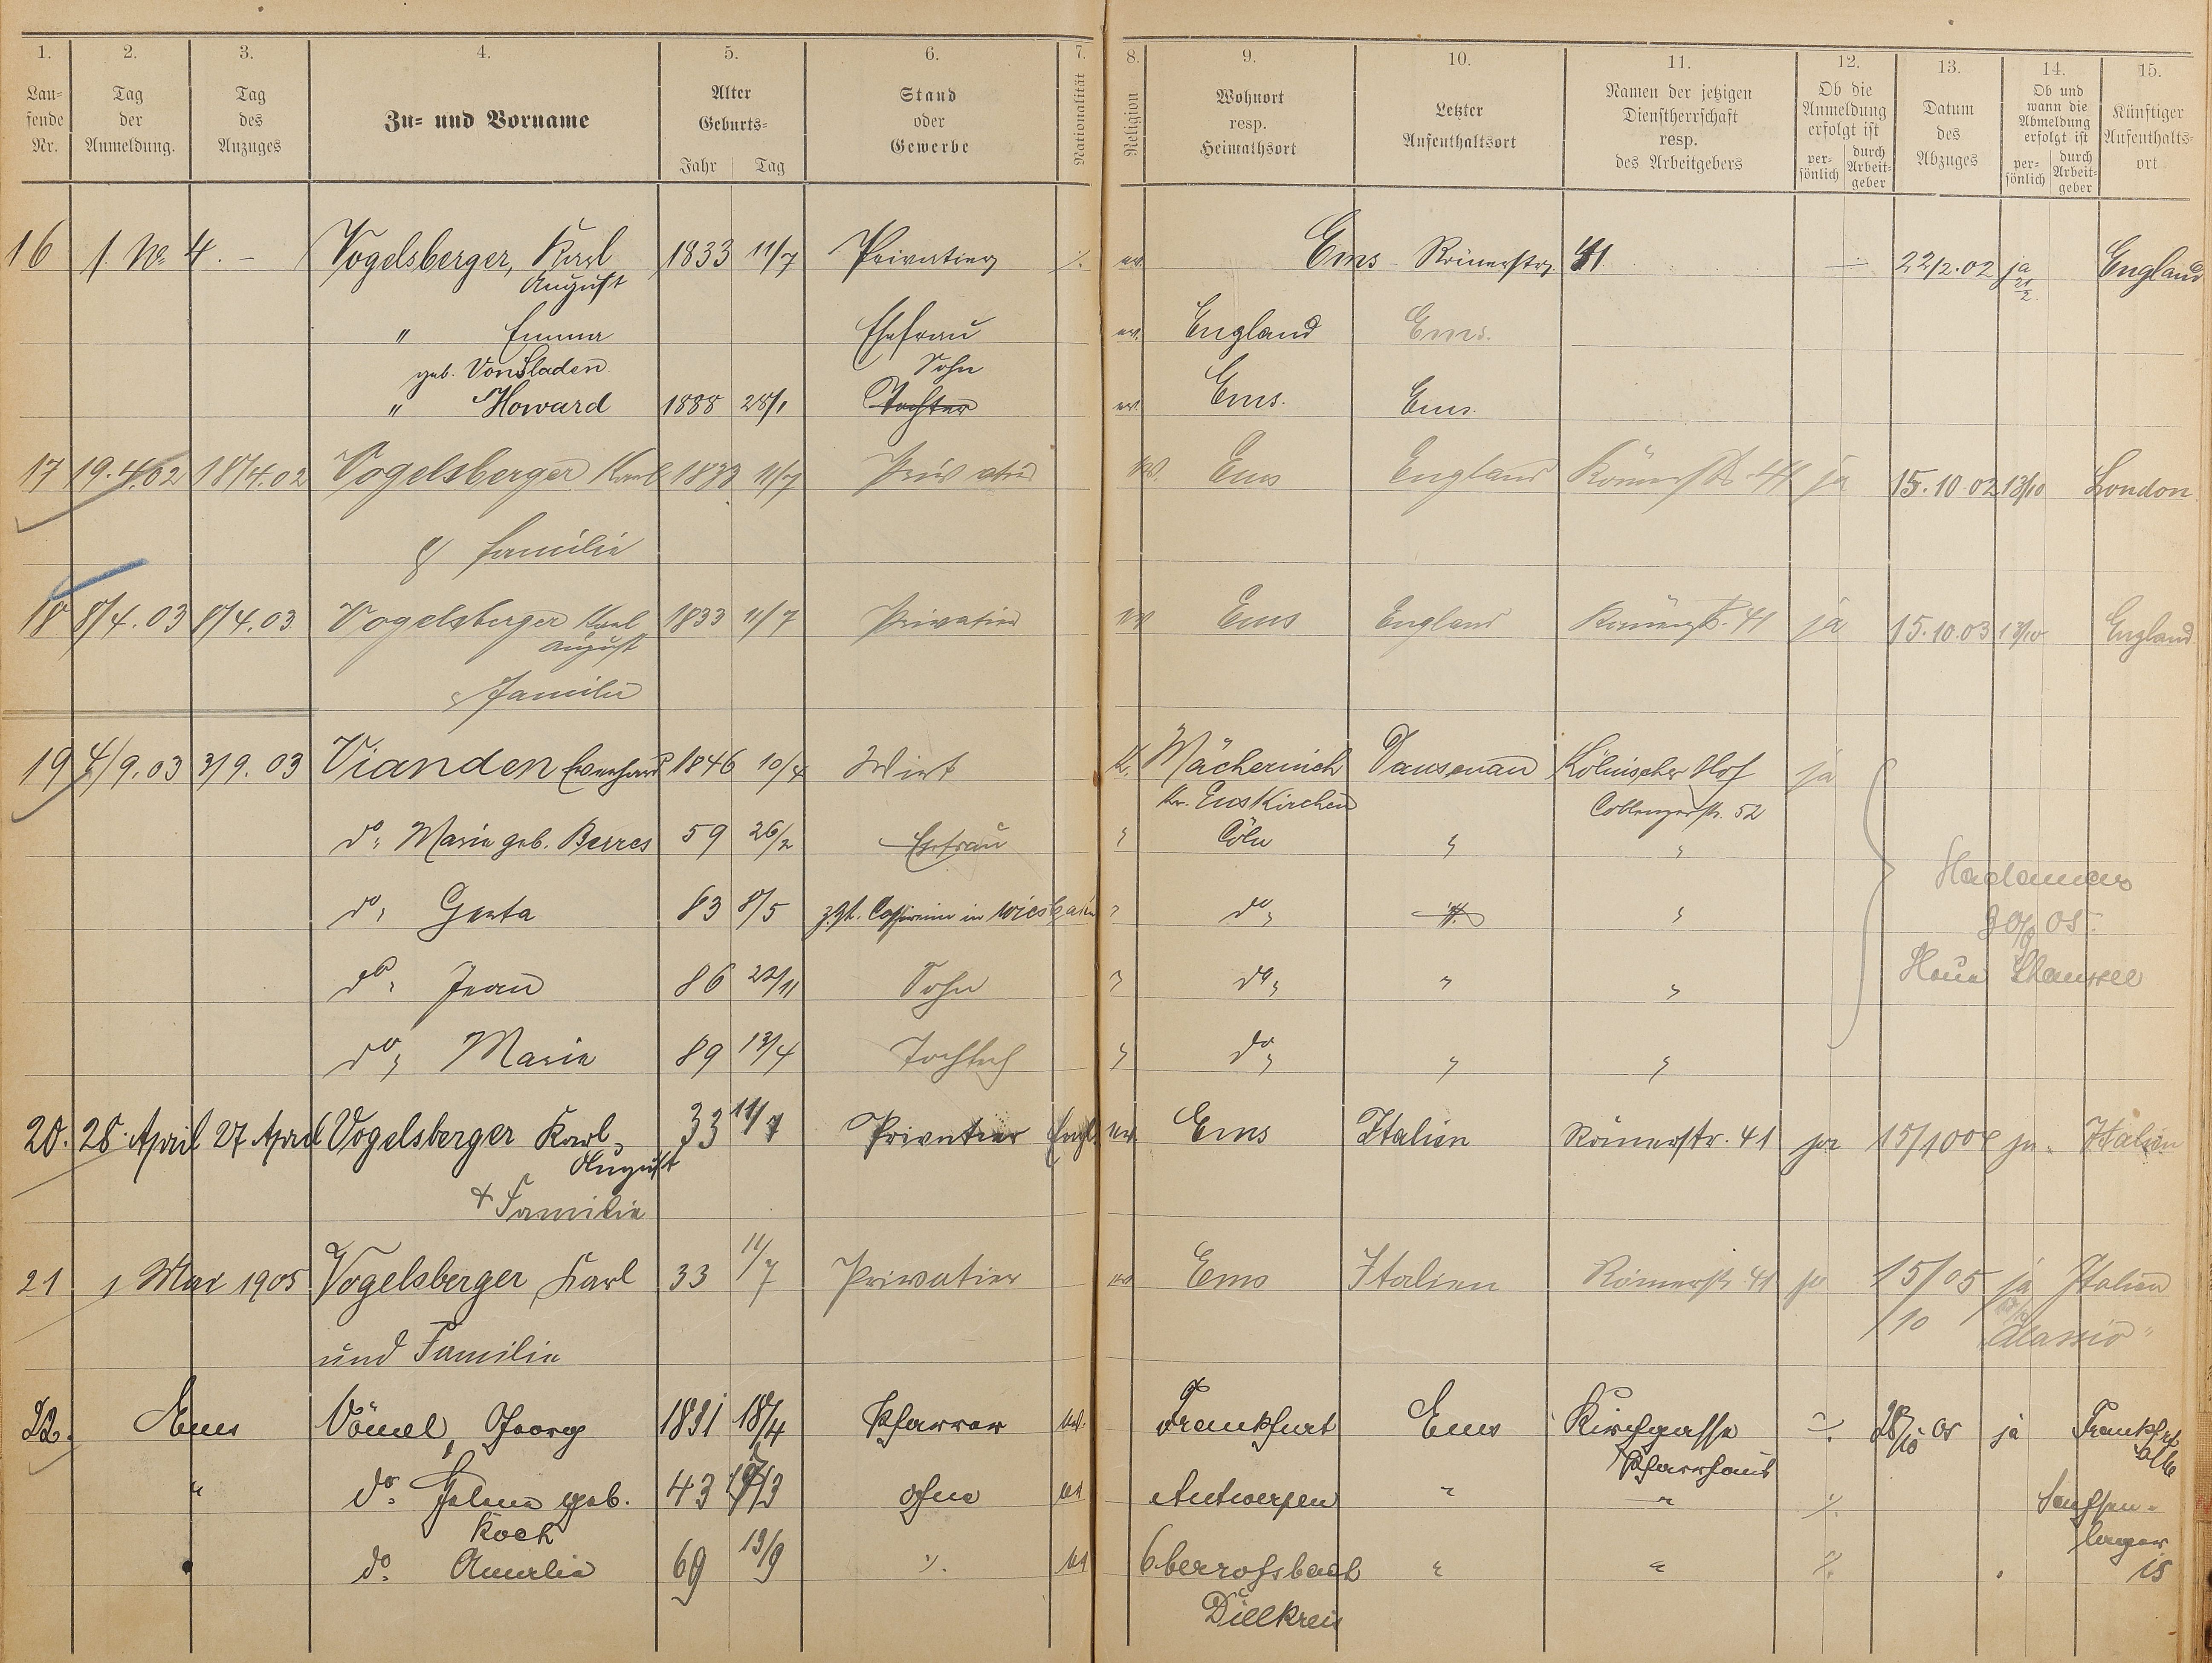 1. 2. 3. 4. 5. 6. 7. 8. 9. 10. 11. 12. 13. 14. 15.
Lau=
fende
Nr.
Tag
der
Anmeldung.
Tag
des
Anzuges
Zu= und Vorname
Alter
Geburts=
Jahr Tag
Stand
oder
Gewerbe
Nationalität
Religion
Wohnort
resp.
Heimathsort
Letzter
Aufenthaltsort
Namen der jetzigen
Dienstherrschaft
resp.
des Arbeitgebers
Ob die
Anmeldung
erfolgt ist
per=
sönlich
durch
Arbeit=
geber
Datum
des
Abzuges
Ob und
wann die
Abmeldung
erfolgt ist
per=
sönlich
durch
Arbeit=
geber
Künftiger
Aufenthalts=
ort
16 Vogelsberger, Karl 1833 11/7 Privatier ev. Ems - Römerstr. 41 22/2.02 ja England
August 21/2
" Emma Ehefrau ev. England Ems.
geb. Von Sladen Sohn
" Howard 1888 28/1 Tochter ev. Ems. Ems.
17 19.4.02 18/4.02 Vogelsberger Karl 1833 11/7 Privatier ev. Ems England Römerstr. 41 ja 15.10.02 13/10 London
& Familie
18 8/4.03 8/4.03 Vogelsberger Karl 1833 11/7 Privatier ev Ems England Römerstr. 41 ja 15.10.03 13/10 England
August
Familie
19 4/9.03 3/9.03 Vianden Everhard 1846 10/4 Wirt K. Mächernich Dausenau Kölnischer Hof ja
Kr. Euskirchen Coblenzerstr. 52
do. Marie geb. Berres 59 26/2 Ehefrau " Cöln " "
Hadamar
do. Gerta 83 8/5 z. Zt. in Wiesbaden " do. "
05.
do. Jean 86 22/11 Sohn " do. " "
Chaussee
do. Marie 89 13/4 Tochter " do. " "
20. 28. April 27 April Vogelsberger Karl 33 11/7 Privatier Engl. ev. Ems Italien Römerstr. 41 ja 15/10 04 ja. Italien
August
+ Familie
21 1 Mai 1905 Vogelsberger Karl 33 11/7 Privatier ev Ems Italien Römerstr 41 ja 15/10 05 ja Italien
"Alassio"
und Familie
22. Ems Vömel, Georg 1831 18/4 Pfarrer ev. Frankfurt Ems Kirchgasse 28/10 05 ja Frankfrt
Pfarrhaus
" do. Helene geb. 43 /3 ohne ev Antwerpen " " ./.
Koch
do. Amalie 69 13/9 ./. ev Oberrossbach " " ./. 15
Dillkreis